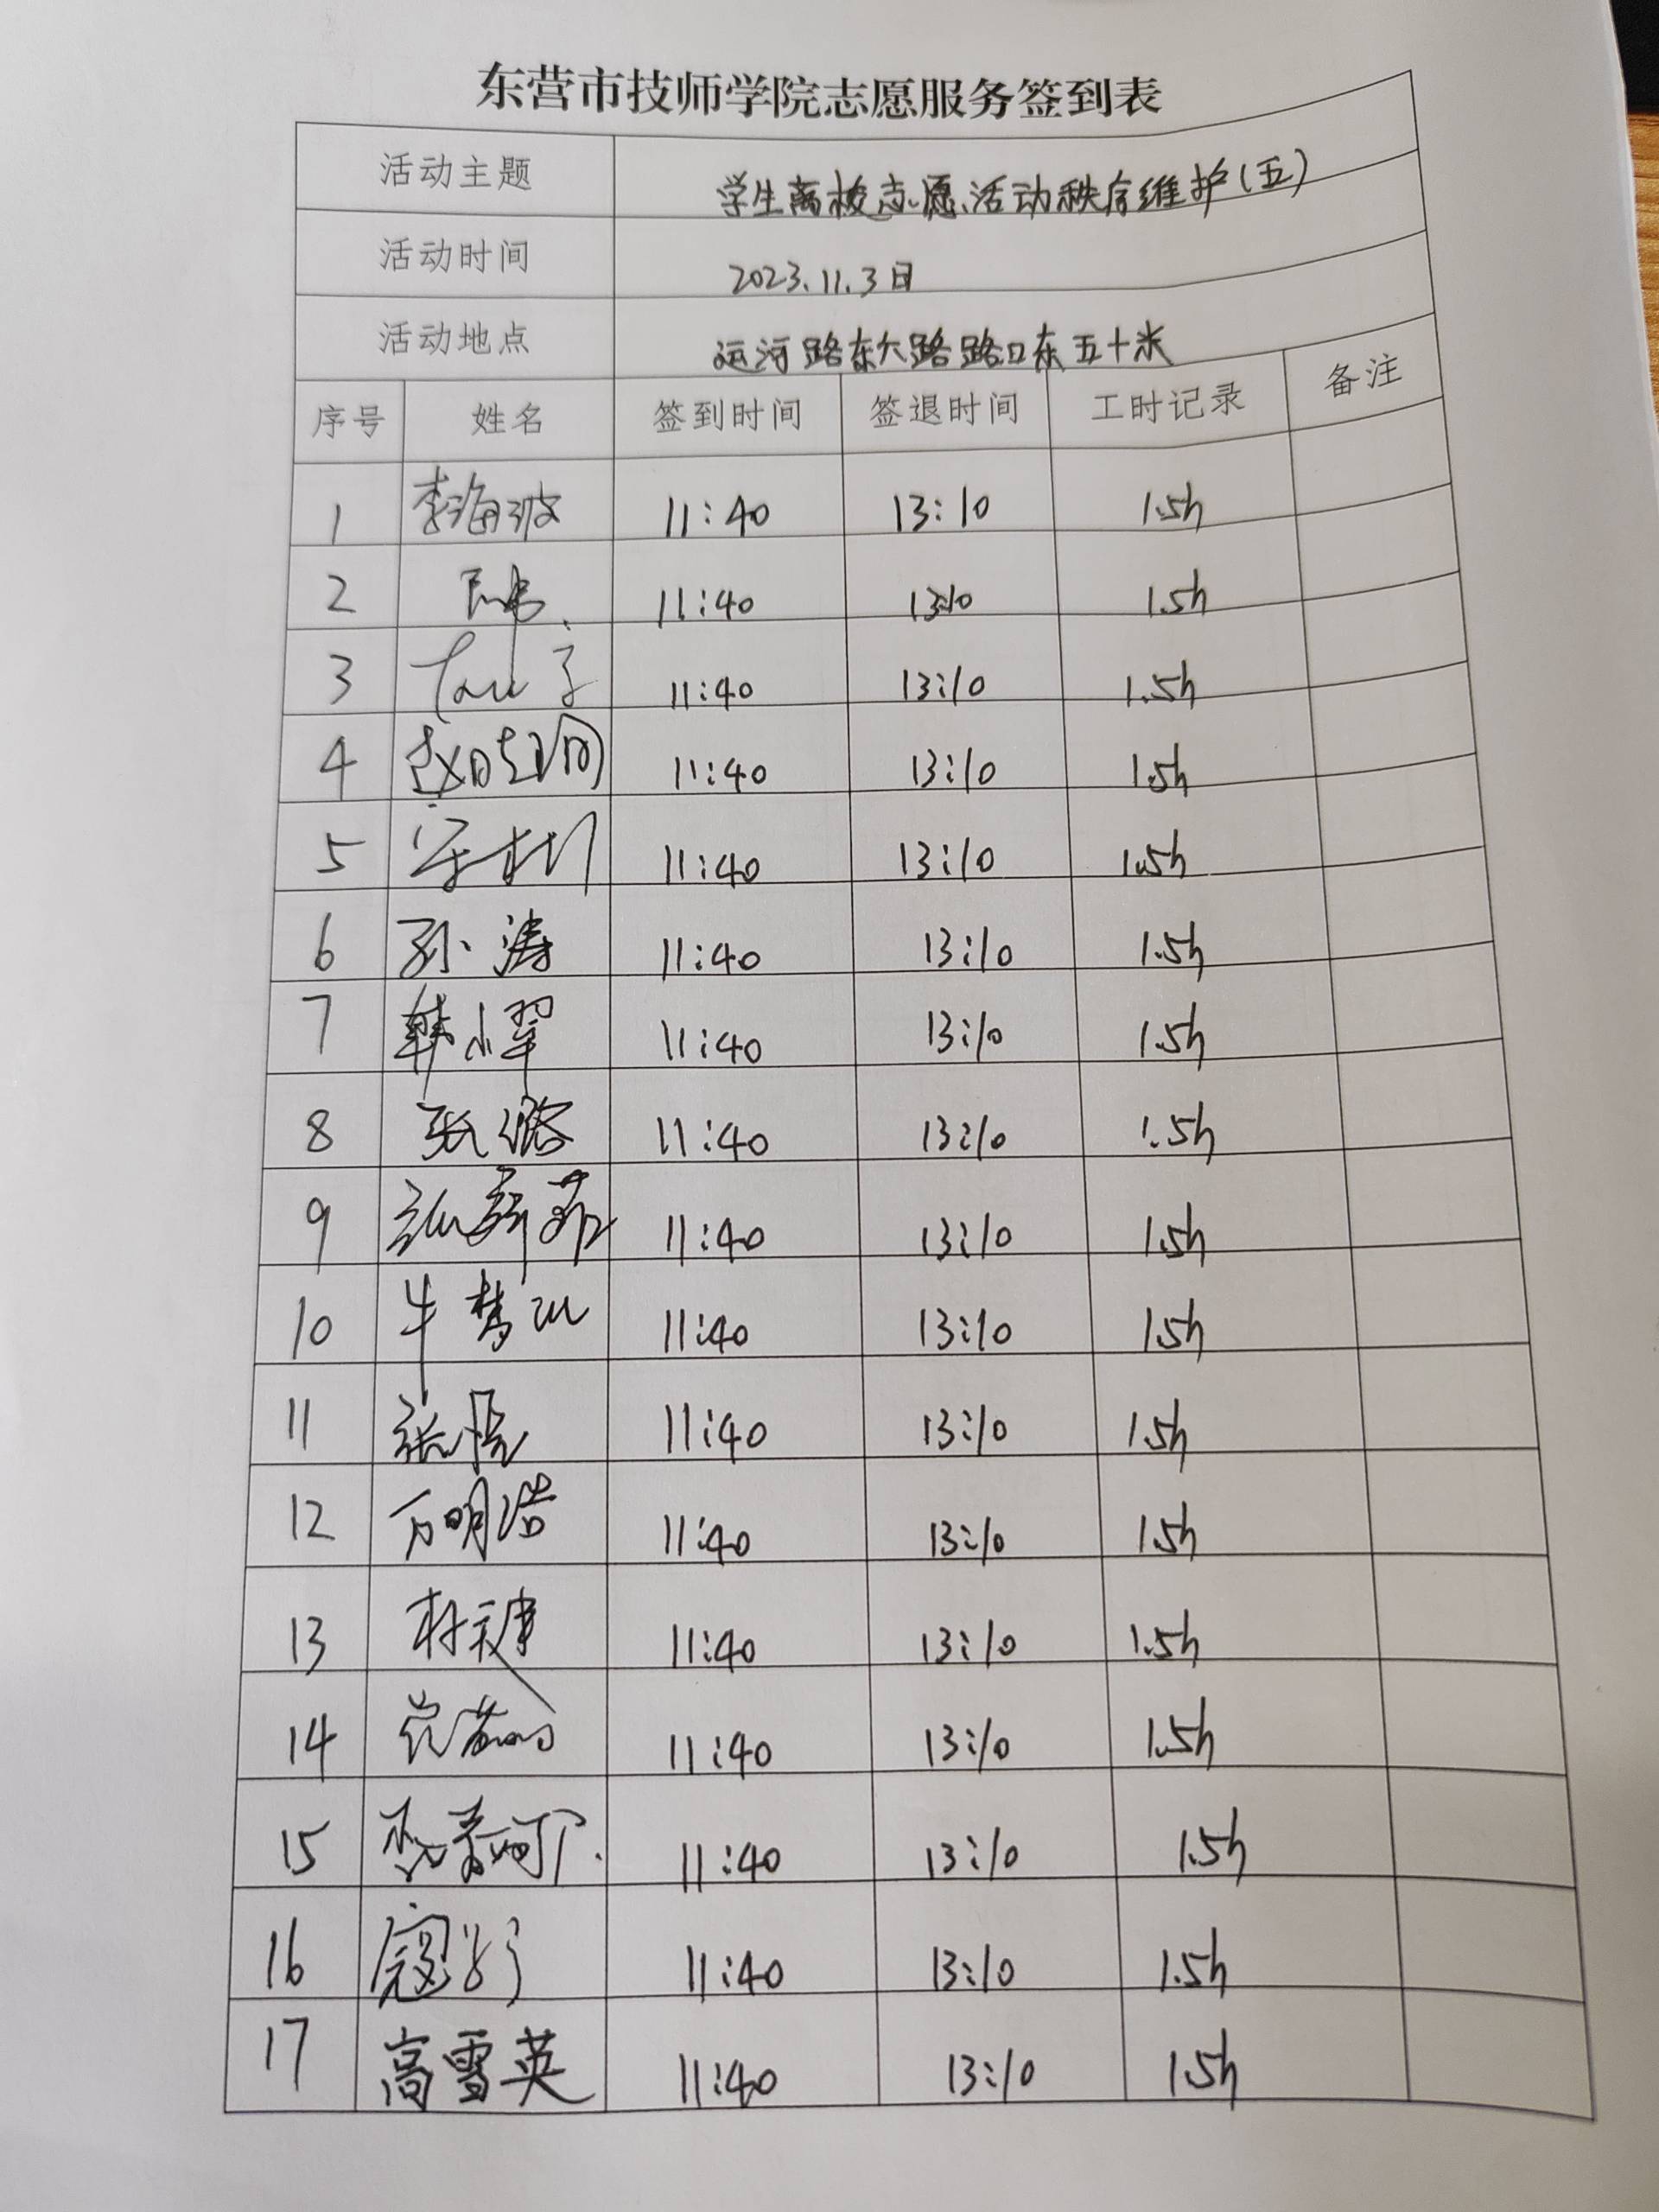 东营市技师学院志愿服务签到表
活动主题 学生离校志愿活动秩序维护(五)
活动时间 2023.11.3日
活动地点 运河路东八路路口东五十米
序号 姓名 签到时间 签退时间 工时记录 备注
1 李海波 11:40 13:10 1.5h
2 11:40 13:10 1.5h
3 11:40 13:10 1.5h
4 11:40 13:10 1.5h
5 11:40 13:10 1.5h
6 孙涛 11:40 13:10 1.5h
7 韩小翠 11:40 13:10 1.5h
8 张璐 11:40 13:10 1.5h
9 11:40 13:10 1.5h
10 11:40 13:10 1.5h
11 11:40 13:10 1.5h
12 万明浩 11:40 13:10 1.5h
13 11:40 13:10 1.5h
14 11:40 13:10 1.5h
15 11:40 13:10 1.5h
16 11:40 13:10 1.5h
17 高雪英 11:40 13:10 1.5h